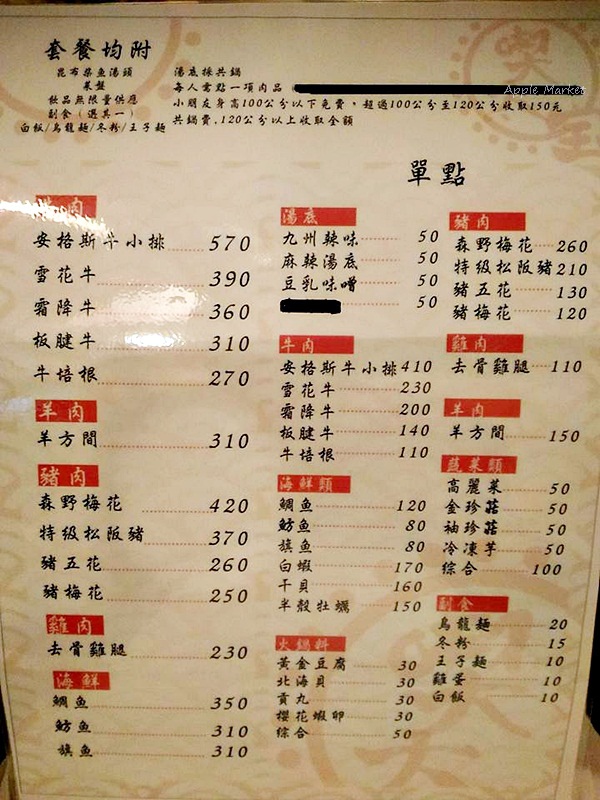 套餐均附
昆布柴魚湯頭
菜盤
飲品無限量供應
副食(選其一)
白飯/烏龍麵/冬粉/王子麵
湯底採共鍋
每人需點一項肉品
Apple Market
小朋友身高100公分以下免費，超過100公分至120公分收取150元
共鍋費,120公分以上收取全額
單點
肉
安格斯牛小排 570
雪花牛 390
霜降牛 360
板腱牛 310
牛培根 270
羊肉
羊方間 310
豬肉
森野梅花 420
特級松阪豬 370
豬五花 260
豬梅花 250
雞肉
去骨雞腿 230
海鮮
鯛魚 350
魴魚 310
旗魚 310
湯底
九州辣味 50
麻辣湯底 50
豆乳味噌 50
50
牛肉
安格斯牛小排 410
雪花牛 230
霜降牛 200
板腱牛 140
牛培根 110
海鮮類
鯛魚 120
魴魚 80
旗魚 80
白蝦 170
干貝 160
半殼牡蠣 150
火鍋料
黃金豆腐 30
北海貝 30
貢丸 30
櫻花蝦卵 30
綜合 50
豬肉
森野梅花 260
特級松阪豬 210
豬五花 130
豬梅花 120
雞肉
去骨雞腿 110
羊肉
羊方間 150
蔬菜類
高麗菜 50
金珍菇 50
袖珍菇 50
冷凍芋 50
綜合 100
副食
烏龍麵 20
冬粉 15
王子麵 10
雞蛋 10
白飯 10